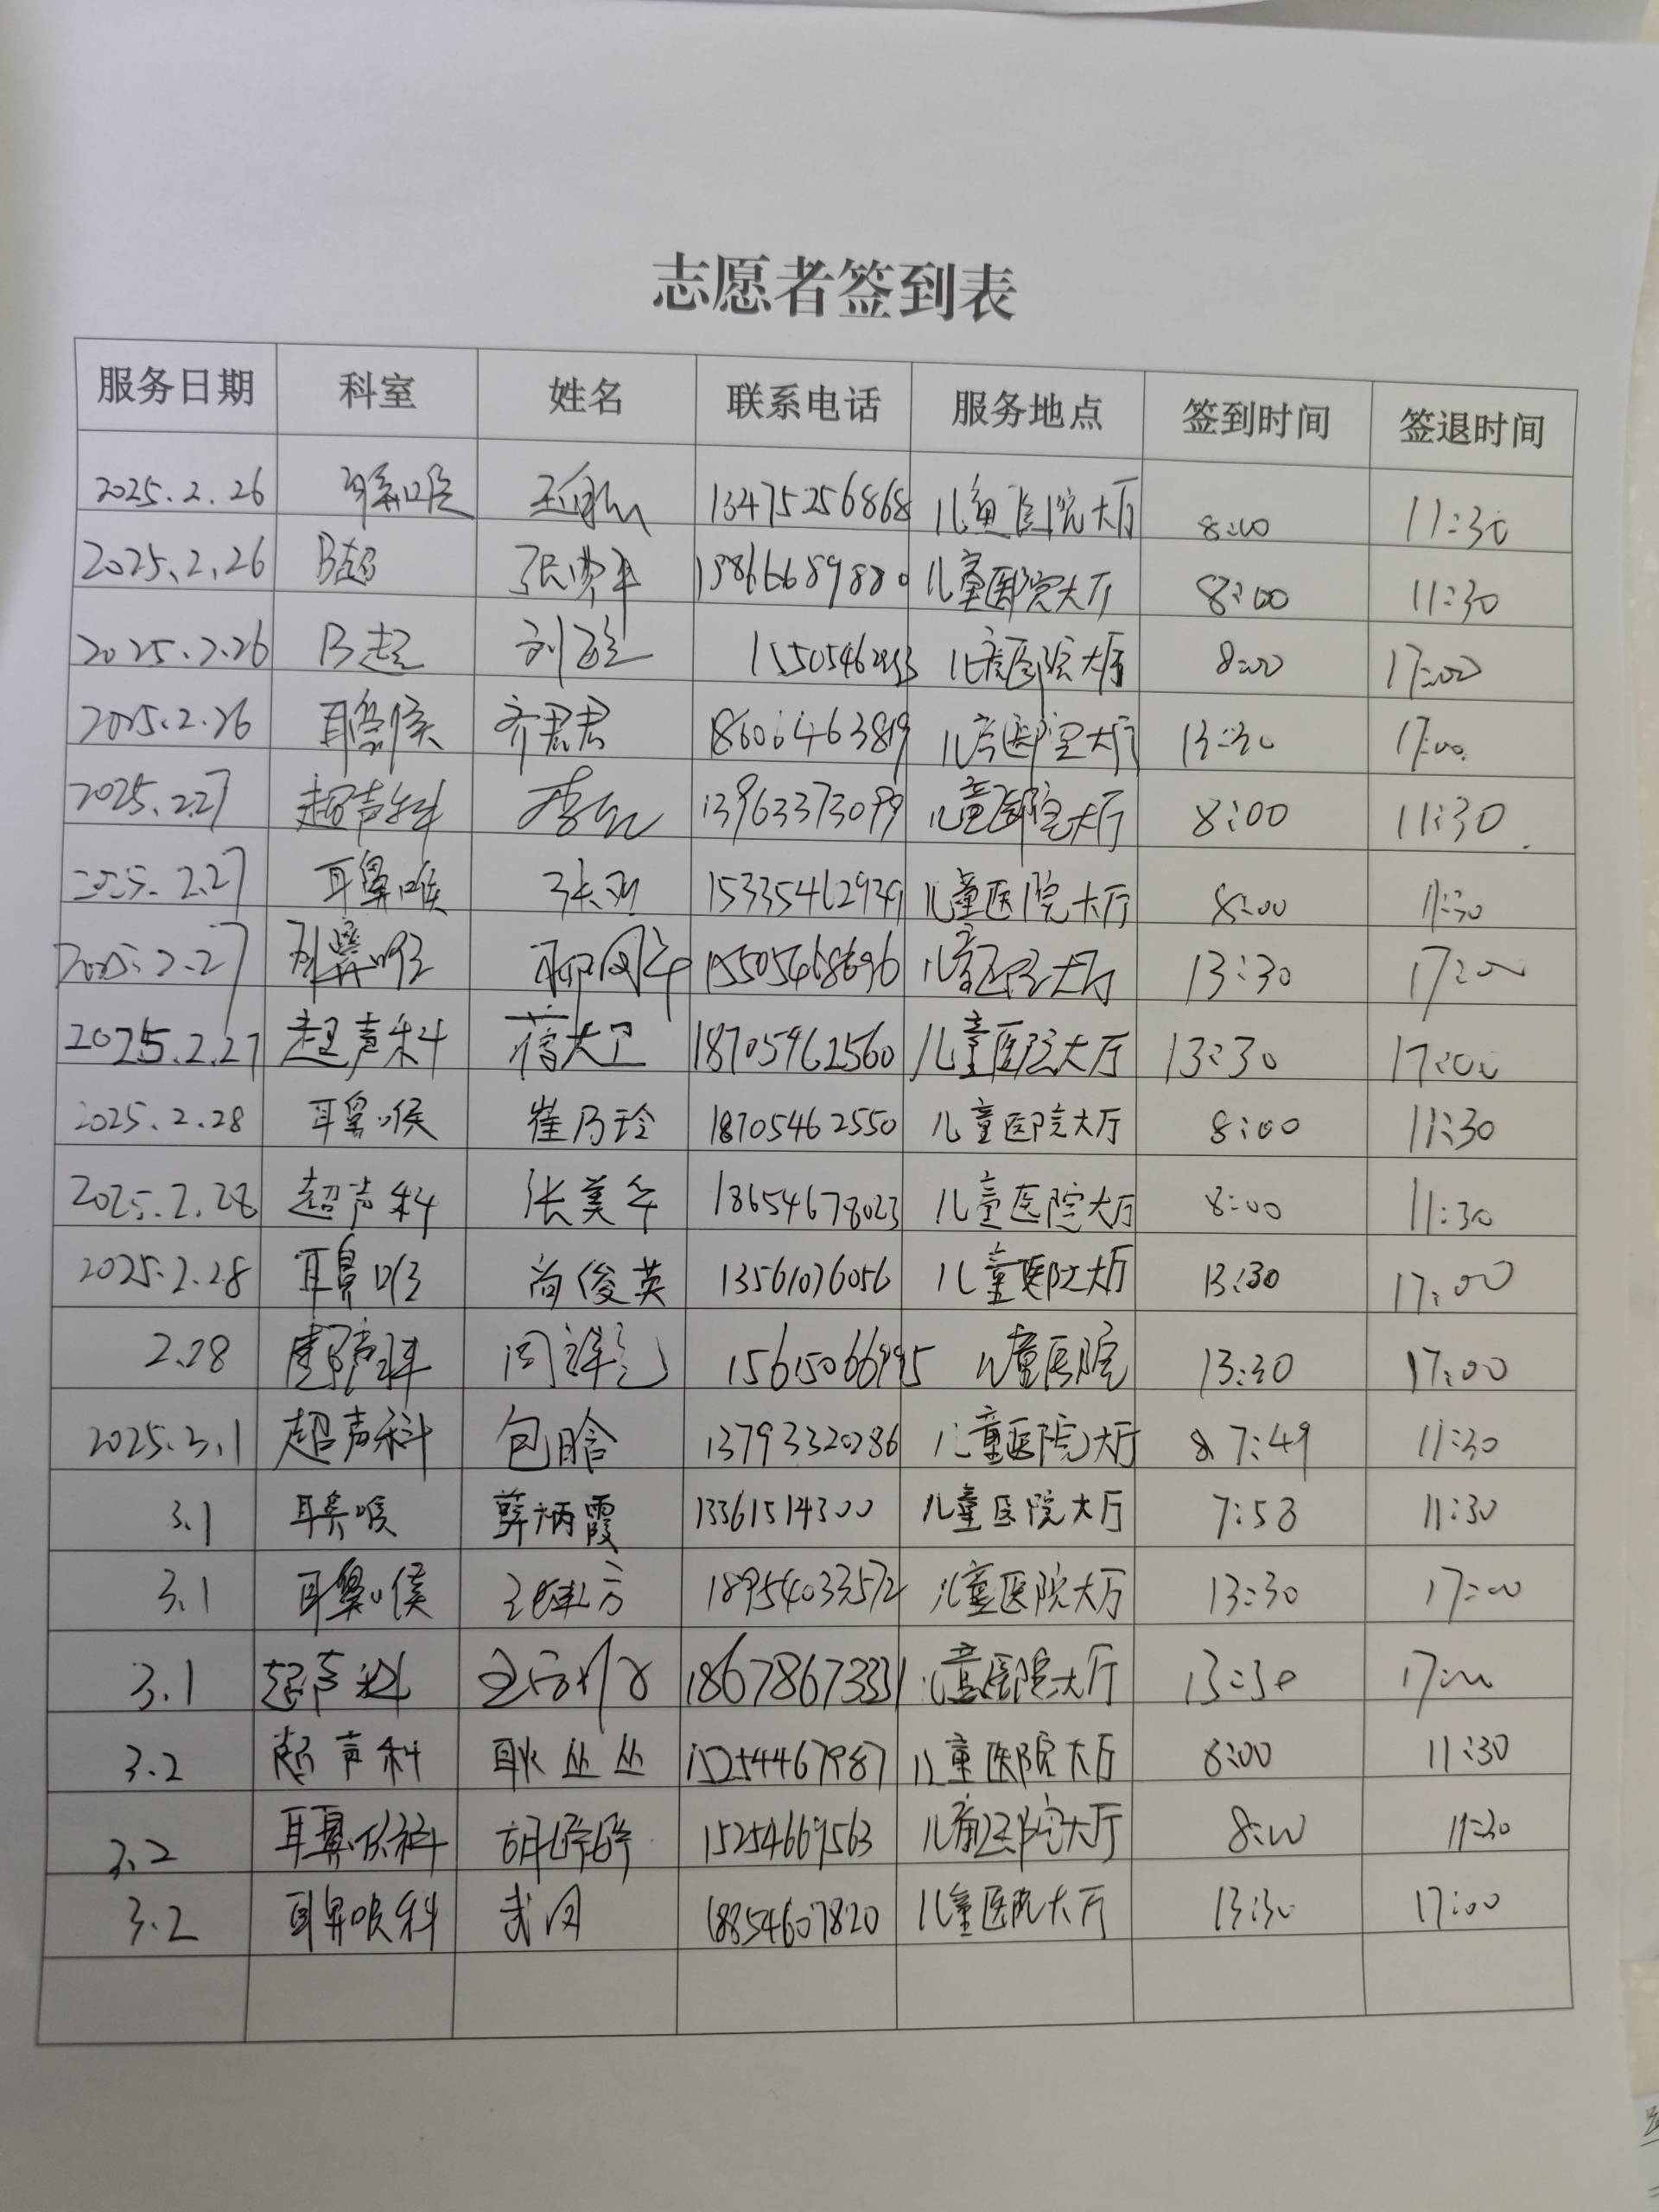 志愿者签到表
服务日期 科室 姓名 联系电话 服务地点 签到时间 签退时间
2025.2.26 耳鼻喉 13475256868 儿童医院大厅 8:00 11:30
2025.2.26 B超 儿童医院大厅 8:00 11:30
2025.2.26 B超 儿童医院大厅 8:00 17:00
2025.2.26 耳鼻喉 齐君君 18606463819 儿童医院大厅 13:30 17:00
2025.2.27 超声科 13963373099 儿童医院大厅 8:00 11:30
2025.2.27 耳鼻喉 儿童医院大厅 8:00 11:30
2025.2.27 耳鼻喉 15505468696 儿童医院大厅 13:30 17:00
2025.2.27 超声科 18705462560 儿童医院大厅 13:30 17:00
2025.2.28 耳鼻喉 崔乃玲 18705462550 儿童医院大厅 8:00 11:30
2025.2.28 超声科 张美华 18654678023 儿童医院大厅 8:00 11:30
2025.2.28 耳鼻喉 尚俊英 13561076056 儿童医院大厅 13:30 17:00
2.28 超声科 儿童医院 13:30 17:00
2025.3.1 超声科 包晗 13793320286 儿童医院大厅 7:49 11:30
3.1 耳鼻喉 薛炳霞 13361514300 儿童医院大厅 7:58 11:30
3.1 耳鼻喉 18954033572 儿童医院大厅 13:30 17:00
3.1 超声科 18678673331 儿童医院大厅 13:30 17:00
3.2 超声科 耿丛丛 15254467987 儿童医院大厅 8:00 11:30
3.2 耳鼻喉科 胡婷婷 15254669563 儿童医院大厅 8:00 11:30
3.2 耳鼻喉科 18854607820 儿童医院大厅 13:30 17:00